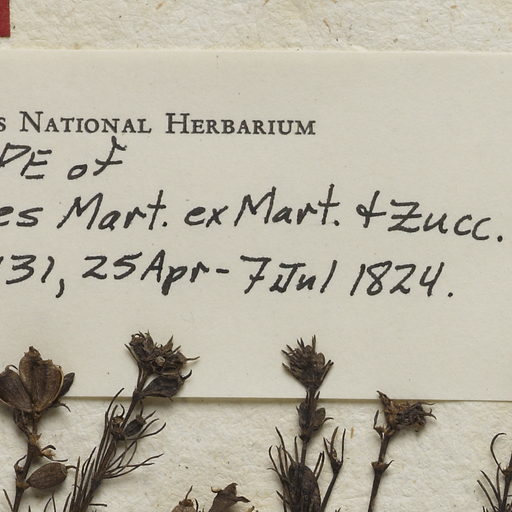 s National Herbarium
PE of
es Mart. ex Mart. & Zucc.
131, 25 Apr - 7 Jul 1824.